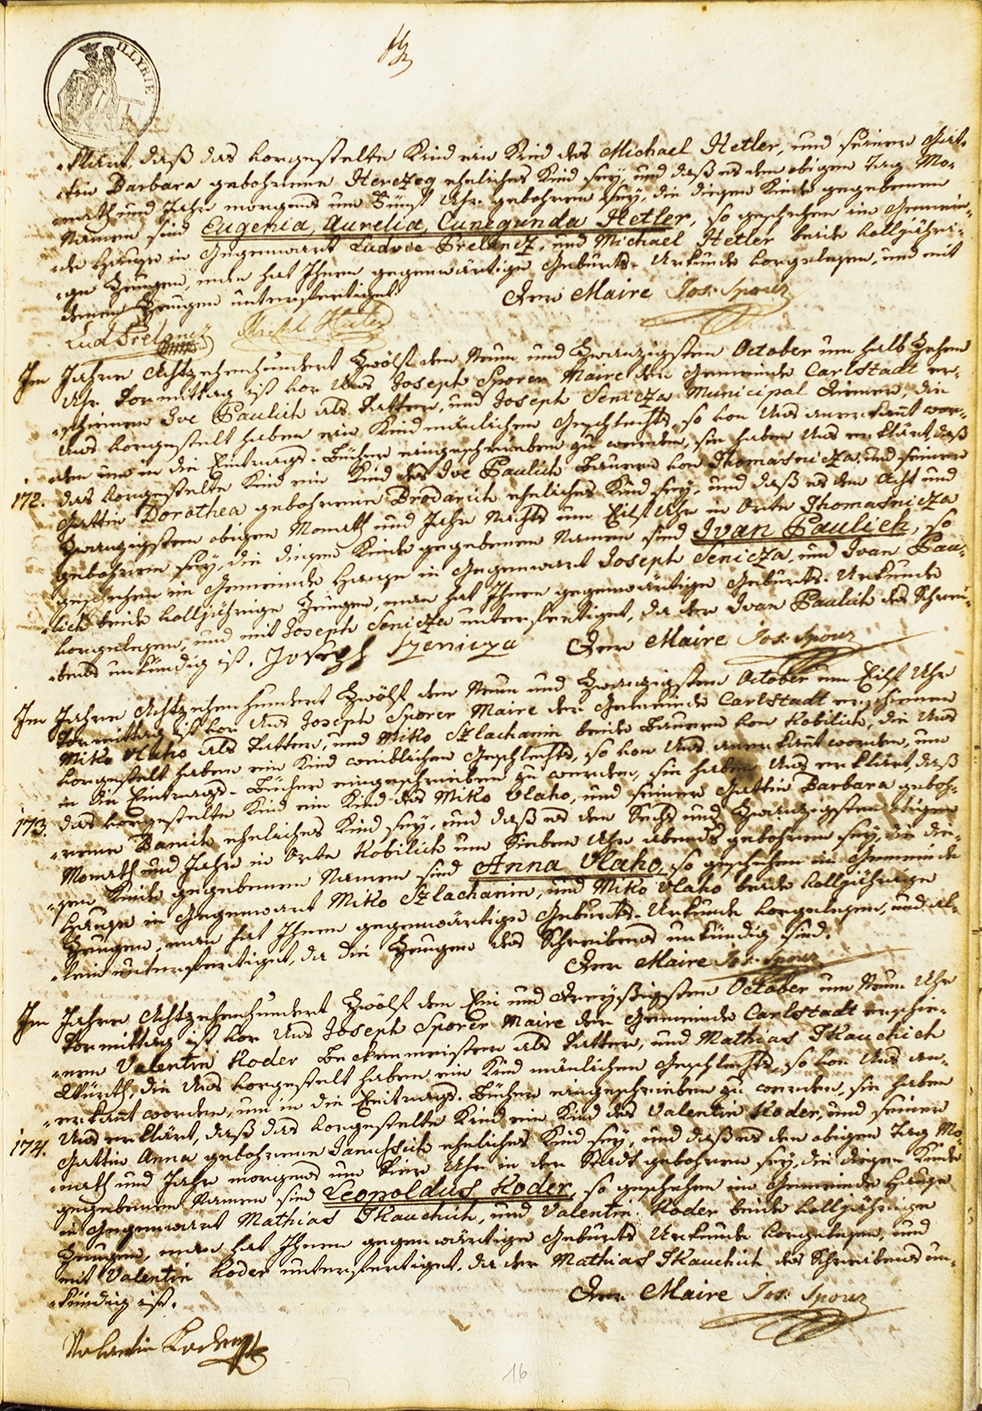 ILLYRIE
klärt, daß das vorgestelte Kind ein Kind des Michael Hetler, und seiner Gat-
tin Barbara gebohrene Herczeg eheliches Kind sey, und daß es den obigen Tag Mo-
nath und Jahr morgens um Fünf Uhr gebohren sey, die diesem Kinde gegebenen
Namen sind Eugenia, Aurelia, Cunegunda Hetler, so geschehen im Gemein-
de Hause in Gegenwart Ludvic Prelancz, und Michael Hetler beide volljähri-
ge Zeugen, man hat Ihnen gegenwärtige Geburts-Urkunde vorgelesen, und mit
denen Zeugen unterfertiget. Der Maire Jos: Sporer
Lud Prelancz
Im Jahre Achtzehenhundert Zwölf den Neun und Zwanzigsten October um halb Zehen
Uhr Vormittag ist vor Uns Joseph Sporer Maire der Gemeinde Carlstadt er-
schienen Ive Paulich als Vatter, und Joseph Senicza Municipal Diener, die
Uns vorgestelt haben ein Kind mänlichen Geschlechts, so von Uns anerkant wor-
den um in die Eintrags-Bücher eingeschrieben zu werden, sie haben Uns erklärt, daß
172. das vorgestelte Kind ein Kind des Ive Paulich Bauern von Thomasnicza, und seiner
Gattin Dorothea gebohrene Brodarich eheliches Kind sey, und daß es den Acht und
Zwanzigsten obigen Monath und Jahr Nachts um Eilf Uhr in Orte Thomasnicza
gebohren sey, die diesem Kinde gegebenen Namen sind Ivan Paulich, so
geschehen im Gemeinde Hause in Gegenwart Joseph Senicza, und Ivan Pau-
lich beide volljährige Zeugen, man hat Ihnen gegenwärtige Geburts-Urkunde
vorgelesen, und mit Joseph Senicza unterfertiget, da der Ivan Paulich des Schrei-
bens unkündig ist. Joseph Szenicza Der Maire Jos: Sporer
Im Jahre Achtzehenhundert Zwölf den Neun und Zwanzigsten October um Eilf Uhr
Vormittag ist vor Uns Joseph Sporer Maire der Gemeinde Carlstadt erschienen
Miko Vlaho als Vatter, und Miko Szlachanin beide Bauern von Kobilich, die Uns
vorgestelt haben ein Kind weiblichen Geschlechts, so von Uns anerkant worden, um
in die Eintrags-Bücher eingeschrieben zu werden, sie haben Uns erklärt, daß
173. das vorgestelte Kind ein Kind des Miko Vlaho, und seiner Gattin Barbara geboh-
rene Banich eheliches Kind sey, und daß es den Sechs und Zwanzigsten obigen
Monath und Jahr in Orte Kobilich um Sieben Uhr abends gebohren sey, die die-
sem Kinde gegebenen Namen sind Anna Vlaho, so geschehen im Gemeinde
Hause in Gegenwart Miko Szlachanin, und Miko Vlaho beide volljährige
Zeugen, man hat Ihnen gegenwärtige Geburts-Urkunde vorgelesen, und al-
lein unterfertiget, da die Zeugen des Schreibens unkündig sind.
Der Maire Jos: Sporer
Im Jahre Achtzehenhundert Zwölf den Ein und Dreyßigsten October um Neun Uhr
Vormittag ist vor Uns Joseph Sporer Maire der Gemeinde Carlstadt erschie-
nen Valentin Koder Beckermeister als Vatter, und Mathias Skauchich
Würth, die Uns vorgestelt haben ein Kind mänlichen Geschlechts, so von Uns an-
erkant worden, um in die Eintrags-Bücher eingeschrieben zu werden, sie haben
174. Uns erklärt, daß das vorgestelte Kind ein Kind des Valentin Koder, und seiner
Gattin Anna gebohrene Januschich eheliches Kind sey, und daß es den obigen Tag Mo-
nath und Jahr morgens um Vier Uhr in der Stadt gebohren sey, die diesem Kinde
gegebenen Namen sind Leopoldus Koder, so geschehen im Gemeinde Hause
in Gegenwart Mathias Skauchich, und Valentin Koder beide volljährige
Zeugen, man hat Ihnen gegenwärtige Geburts Urkunde vorgelesen, und
mit Valentin Koder unterfertiget, da der Mathias Skauchich des Schreibens un-
kündig ist. Der Maire Jos: Sporer
Valentin Koder
16